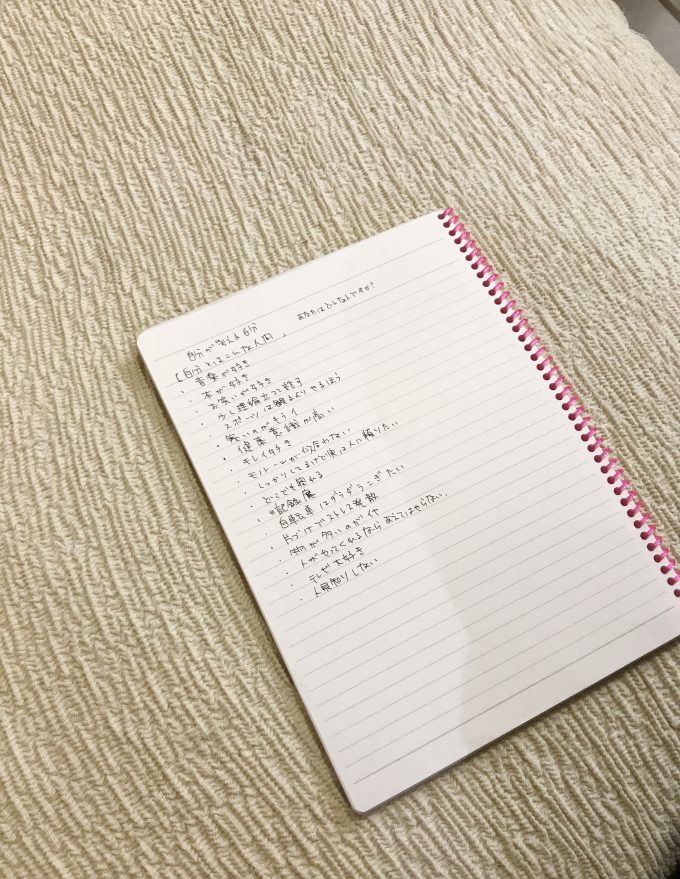 自分が考える自分
あなたはどんな人ですか?
「自分とはこんな人間」
・音楽が好き
・本が好き
・お笑いが好き
・少し理論立て話す
・スポーツは観るよりやるほう
・寒いのがキライ
・健康意識が高い
・キレイ好き
・モノトーンが似合わない
・しっかりしてるけど実は人に頼りたい
・どこでも寝れる
・記録魔
・自転車はダラダラこぎたい
・片づけでストレス発散
・物が多いのがイヤ
・人がやってくれるならあえてはやらない。
・テレビ大好き
・人見知りしない